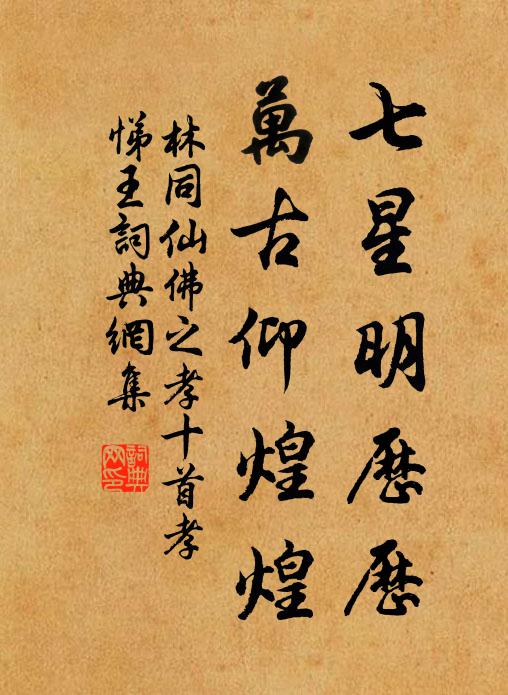 七星明歷歷
萬古仰煌煌
林同仙佛之孝十首孝
悌王詞典網集
詞典網印